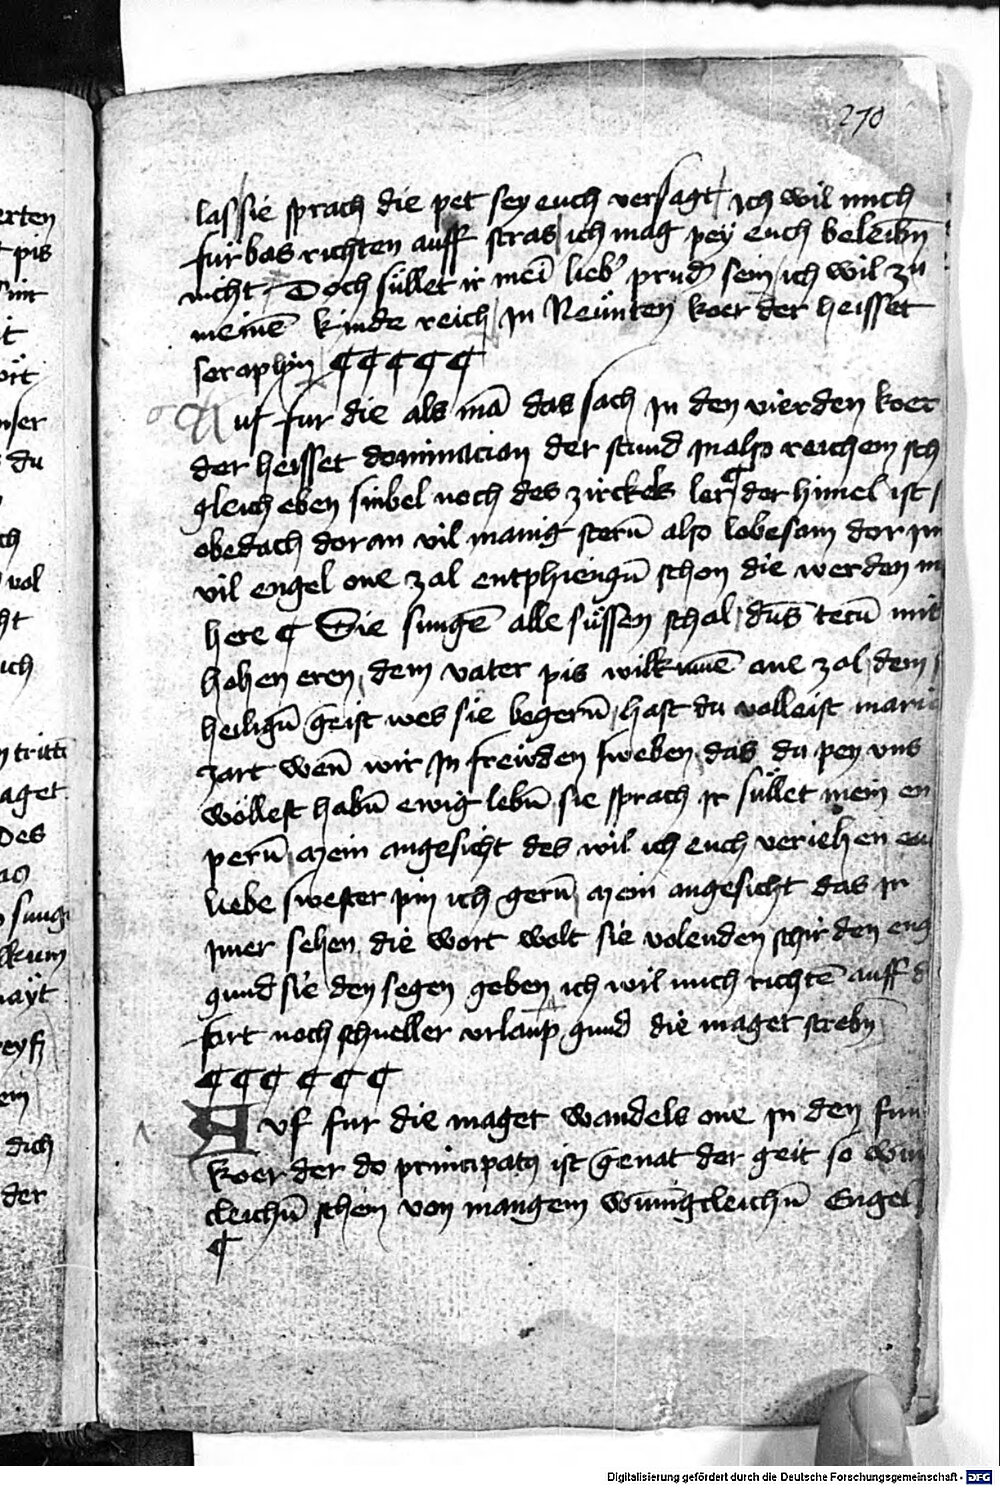 270
las sie sprach die pet sey euch versagt ich wil mich
fur bas richten auff stras ich mag pey euch beleibn̄
nicht Doch sullet ir mei͞ lieb' prud' sein ich wil zu
meine͞ kinde reich jn Neu̇nten koer der heisset
seraphin ¶ ¶ ¶ ¶ ¶
Auf fur die als ma͞ das sach jn den vierden koer
der heisset dominacion der stund jn also reichem sch
gleich eben sinbel noch des zirckels ler ¶ der himel ist s
obedach doran vil manig stern̄ also lobesam dor jn
vil engel one zal entphiengn̄ schon die werden m
here ¶ Sie sunge͞ alle sússen schal dn̄s tecu͞ mit
hohen eren dem vater pis wilkume͞ one zal dem
heilign̄ geist wes sie begern̄ hast du volleist marie
zart wen̄ wir jn freuden sweben das du pey vns
wo̎llest habn̄ ewig lebn̄ sie sprach jr súllet mein en
pern̄ mein angesicht des wil ich euch veriehen eu
liebe swester pin ich gern̄ mein angesicht das jr
jmer sehen die wort wolt sie volenden schir den eng
gund sie den segen geben ich wil mich richte͞ auff d
fart noch schneller vrlaup gund die maget strebn̄
¶ ¶ ¶ ¶ ¶ ¶
Avf fur die maget wandels one jn den fun
koer der do principatq ist genat der geit so wun
cleichn̄ schein von mangem wun̄igcleichn̄ Engel
¶
Digitalisierung gefördert durch die Deutsche Forschungsgemeinschaft - DFG